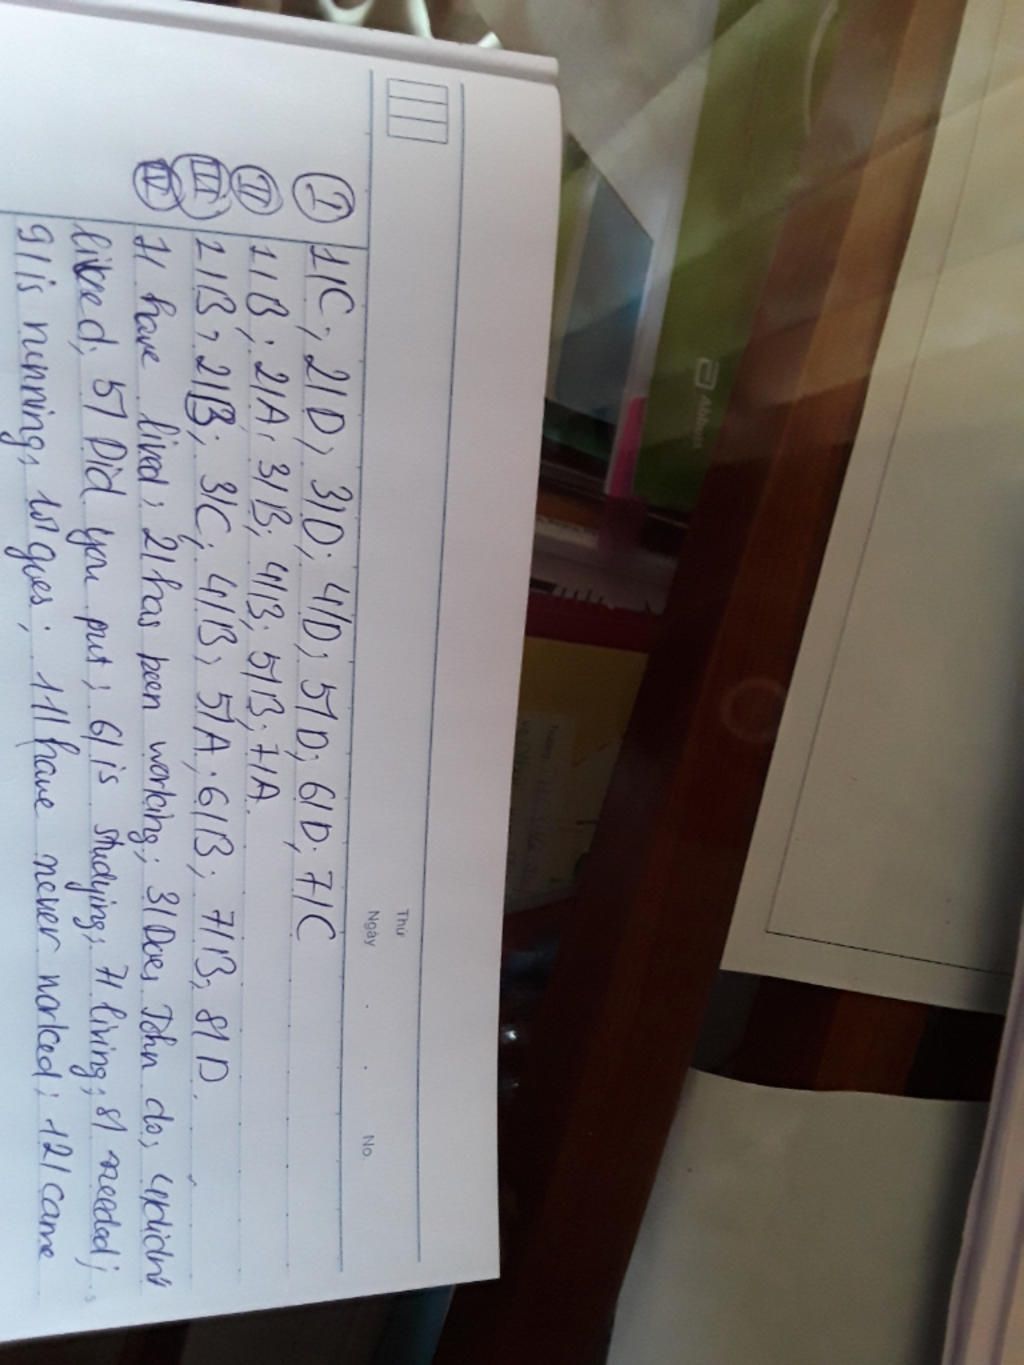 Thứ
Ngày . . No.
I 1/C, 2/D, 3/D; 4/D; 5/D; 6/D; 7/C
II 1/B; 2/A; 3/B; 4/B; 5/B; 7/A.
III 1/B, 2/B; 3/C; 4/B; 5/A; 6/B; 7/B; 8/D.
IV 1/ have lived; 2/ has been working; 3/ Does John do, 4/didn't
liked; 5/ Did you put; 6/ is studying; 7/ living; 8/ needed;
9/ is running, 10/ goes; 11/ have never worked; 12/ came